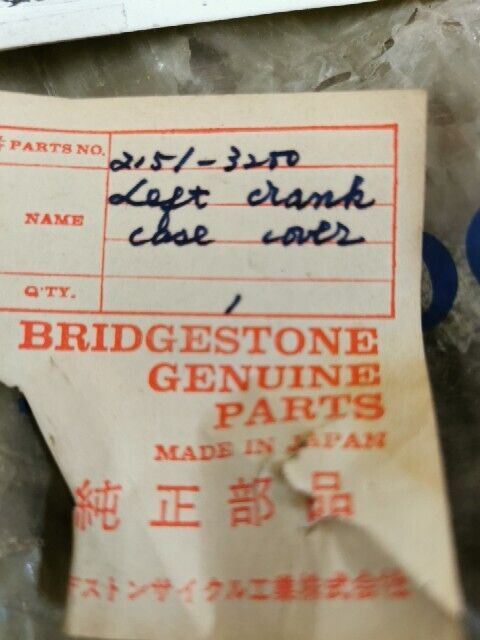 PARTS NO. 2151-3250
NAME Left crank
case cover
Q'TY. 1
BRIDGESTONE
GENUINE
PARTS
MADE IN JAPAN
純正部品
ストンサイクル工業株式会社